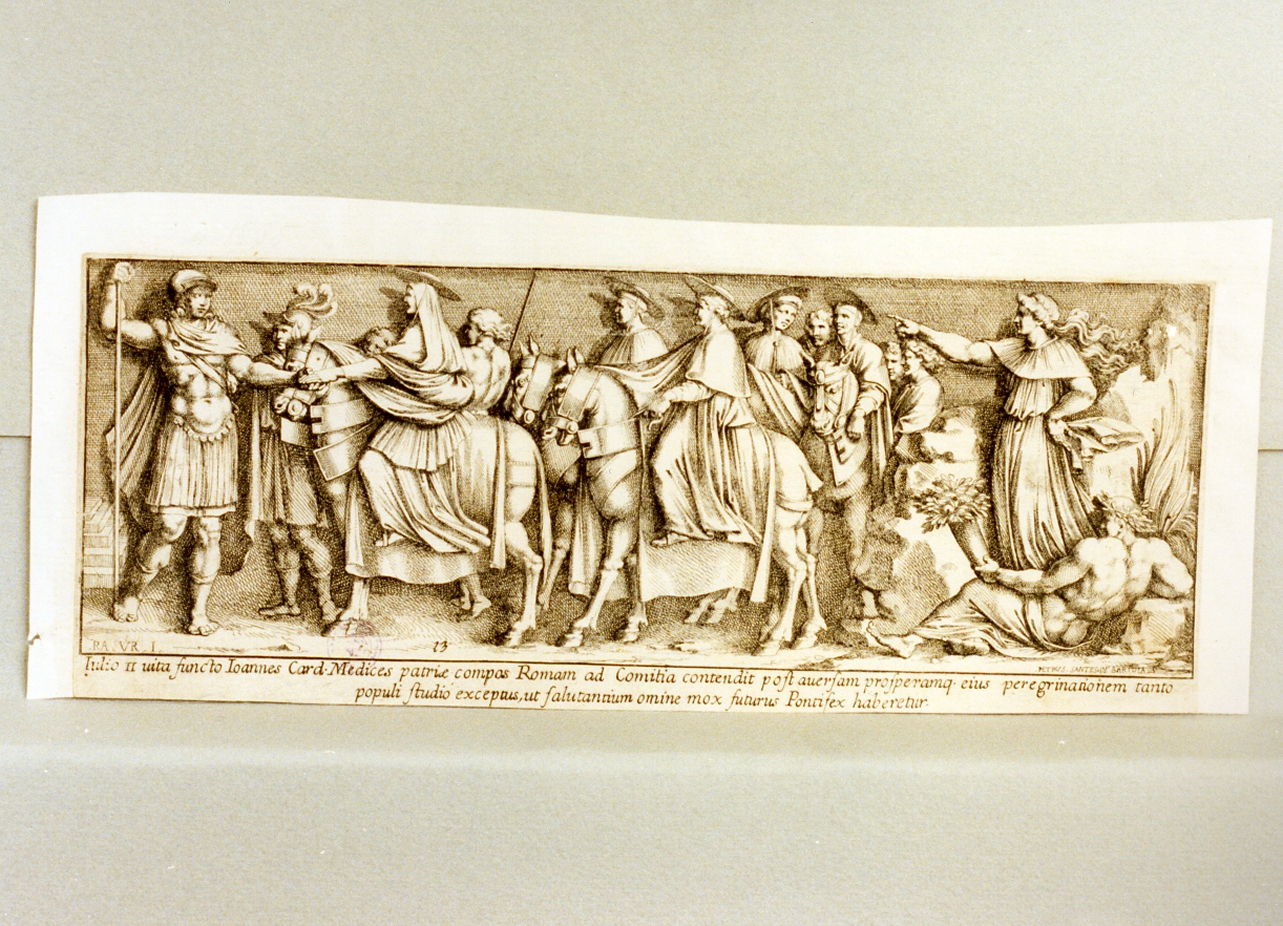 RA. VR. I.
13
PETRVS. SANTES
Iulio II uita functo Ioannes Card. Medices patriæ compos Romam ad Comitia contendit post auersam prosperamq. eius peregrinationem tanto
populi studio exceptus, ut salutantium omine mox futurus Pontifex haberetur.